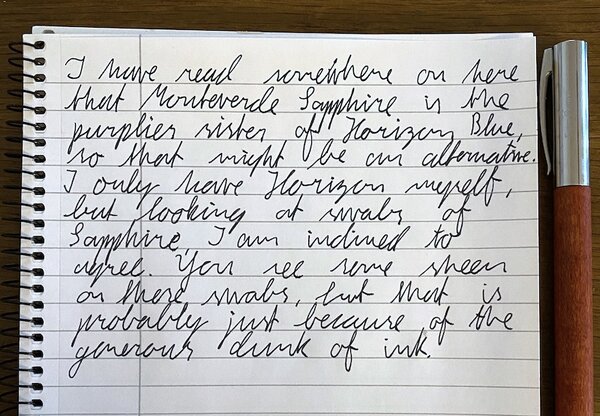 I have read somewhere on here
that Monteverde Sapphire is the
purplier sister of Horizon Blue,
so that might be an alternative.
I only have Horizon myself,
but looking at swabs of
Sapphire, I am inclined to
agree. You see some sheen
on these swabs, but that is
probably just because of the
generous dunk of ink.